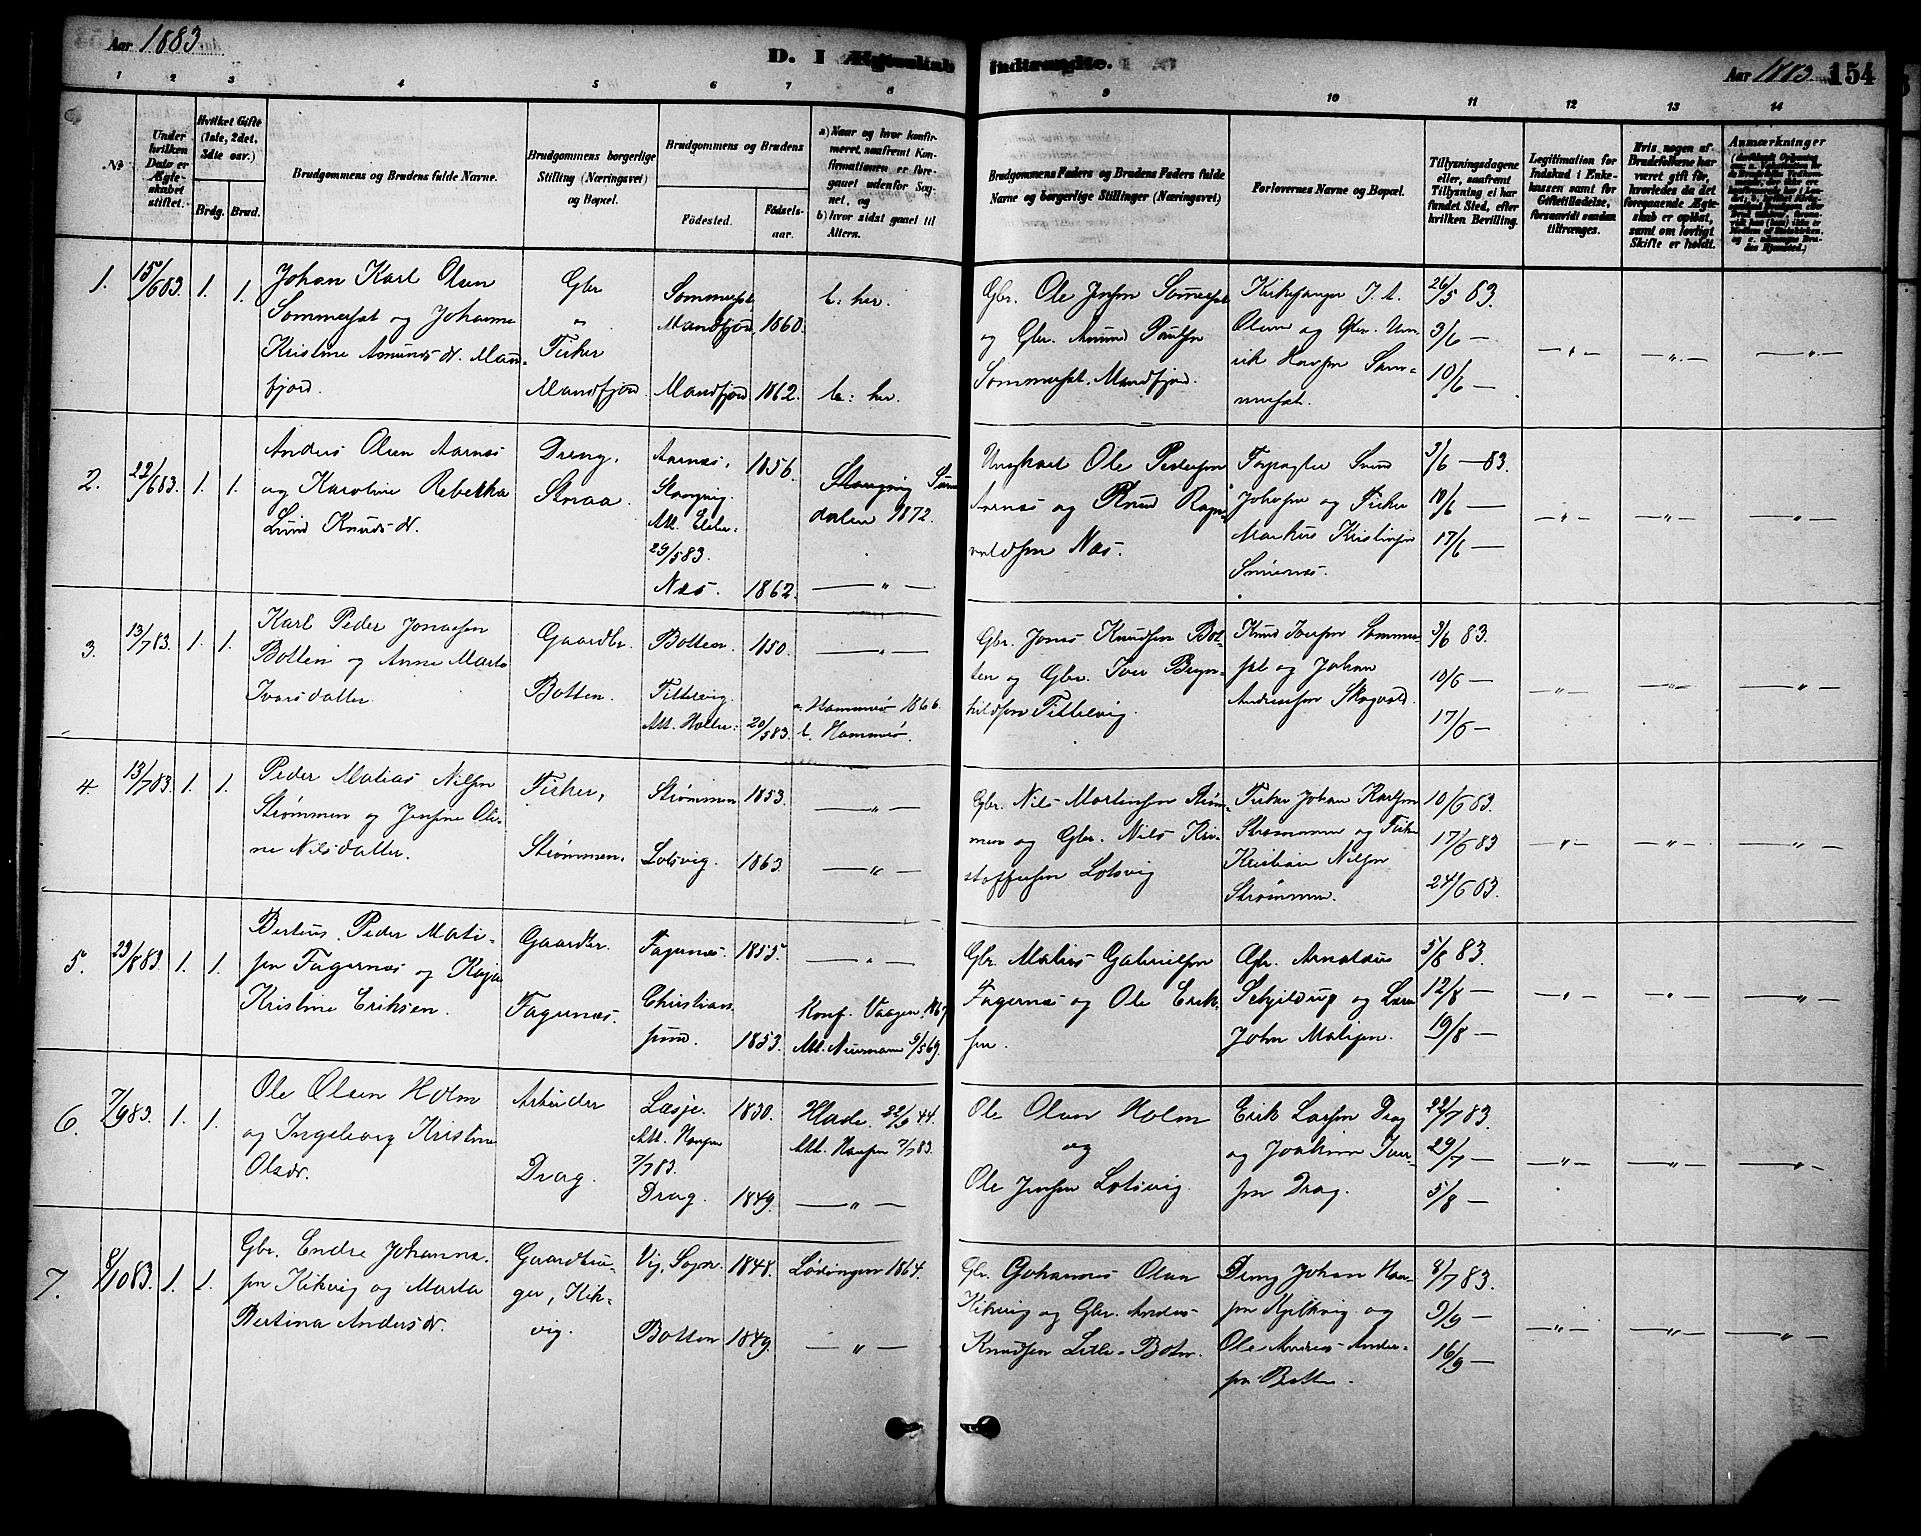 Aar 1883.
D. I Ægteskab Indtraadte.
Aar 1883 154
1 2 3 4 5 6 7 8 9 10 11 12 13 14
No
Under hvilken Dato er Ægteskabet stiftet.
Hvilket Gifte (1ste, 2det, 3die osv.)
Brdg. Brud.
Brudgommens og Brudens fulde Navne.
Brudgommens borgerlige Stilling (Næringsvei) og Bopæl.
Brudgommens og Brudens
Födested.
Födsels-aar.
a) Naar og hvor konfirmeret, saafremt Konfirmationen er foregaaet udenfor Sognet, og
b) hvor sidst gaaet til Alters.
Brudgommens Faders og Brudens Faders fulde Navne og borgerlige Stillinger (Næringsvei)
Forlovernes Navne og Bopæl.
Tillysningsdagene eller, saafremt Tillysning ei har fundet Sted, efter hvilken Bevilling.
Legitimation for Indskud i Enkekassen samt for Giftetilladelse, forsaavidt saadan tiltrænges.
Hvis nogen af Brudefolkene har været gift før, hvorledes da det foregaaende Ægteskab er opløst, samt om lovligt Skifte er holdt.
Anmærkninger
1. 15/6 83. 1. 1.
Johan Karl Olsen
Sommerset og Johanne
Kristine Amunds dr. Mand-
fjord.
Gbr
"
Fisker
Mandfjord
Sommerset
Mandfjord 1860.
Mandfjord 1862.
b. her.
b: her.
Gbr. Ole Jensen Sommerset
og Gbr. Amund Paulsen
Sommerset, Mandfjord.
Kirkesanger J. A.
Olsen og Gbr.
Hansen Som-
merset.
26/5 83.
3/6 —
10/6 —
— " — — " — — " —
2. 22/6 83. 1. 1.
Anders Olsen Aarnes
og Karoline Rebekka
Lund Knuds dr.
Dreng,
Aarnes,
Stangvig.
Att.
29/5 83.
Næs.
1856.
1862.
Stangvig
dalen 1872.
— " —
Ole Pedersen
Aarnes og Knud Ragn-
valdsen Næs.
Forpagter
Johnsen og Fisker
Markus Kristensen
3/6 — 83.
10/6 —
17/6 —
— " — — " — — " —
3. 13/7 83. 1. 1.
Karl Peder Jonassen
Botten og Anne Marta
Ivarsdatter.
Gaardbr.
Botten.
Botten.
Tiltvig.
Att. Holter:
1850.
20/5 83.
— " —
a. Hammerø 1866.
b. Hammerø.
Gbr. Jonas Knudsen Bot-
ten og Gbr. Iver Bryn-
hildsen
Knud Iversen Somme-
set og Johan
Andreassen Skogvold.
3/6 83.
10/6 —
17/6 —
— " — — " — — " —
4. 13/7 83. 1. 1.
Peder Matias Nilsen
Strømmen og Jensine Oli-
ne Nilsdatter.
Fisker,
Strømmen.
Strømmen 1853.
Lotsvig. 1863.
— " —
— " —
Gbr. Nils Martinsen Strøm-
men og Gbr. Nils Kri-
stoffersen Lotsvig
Fisker Johan Karlsen
Strømmen og Fisker
Kristian Nilsen
Strømmen.
10/6 83.
17/6 83
24/6 83.
— " — — " — — " —
5. 29/8 83. 1. 1.
Berteus Peder Mati-
sen Fagernæs og Kaja
Kristine Eriksen.
Gaardbr.
Fagernæs.
Fagernæs.
Christian
sund.
1855.
1853.
— " —
Konf. Vaagen 1869
Att. Neumann 9/5 69.
Gbr. Matias Gabrielsen
Fagernæs og Ole Erik-
sen.
Gbr. Arnoldus
Schjeldrup og
John Matisen.
5/8 83.
12/8 —
19/8 —
— " — — " — — " —
6. 7/9 83. 1. 1.
Ole Olsen Holm
og Ingeborg Kristine
Olsdr.
Arbeider
Drag.
Læsje.
Att. Hansen
7/7 83.
Drag.
1830.
1849.
Hlade. 22/9 44.
Att. Hansen 7/7 83.
— " —
Ole Olsen Holm
og
Ole Jensen Lotsvig.
Erik Larsen Drag
og Joakim Iver-
sen Drag.
22/7 83.
29/7 —
5/8 —
— " — — " — — " —
7. 8/10 83. 1. 1.
Gbr. Endre Johanne-
sen Kikvig og Marta
Bertina Anders dr.
Gaardbru-
ger, Kik-
vig.
Vig, Sogn.
Botten
1848.
1849.
Lødingen 1864.
— " —
Gbr. Johannes Olsen
Kikvig og Gbr. Anders
Knudsen Lille-Botn.
Dreng Johan Han-
sen og
Ole Andreas Ander-
sen Botten.
8/7 83.
9/9 —
16/9 —
— " — — " — — " —